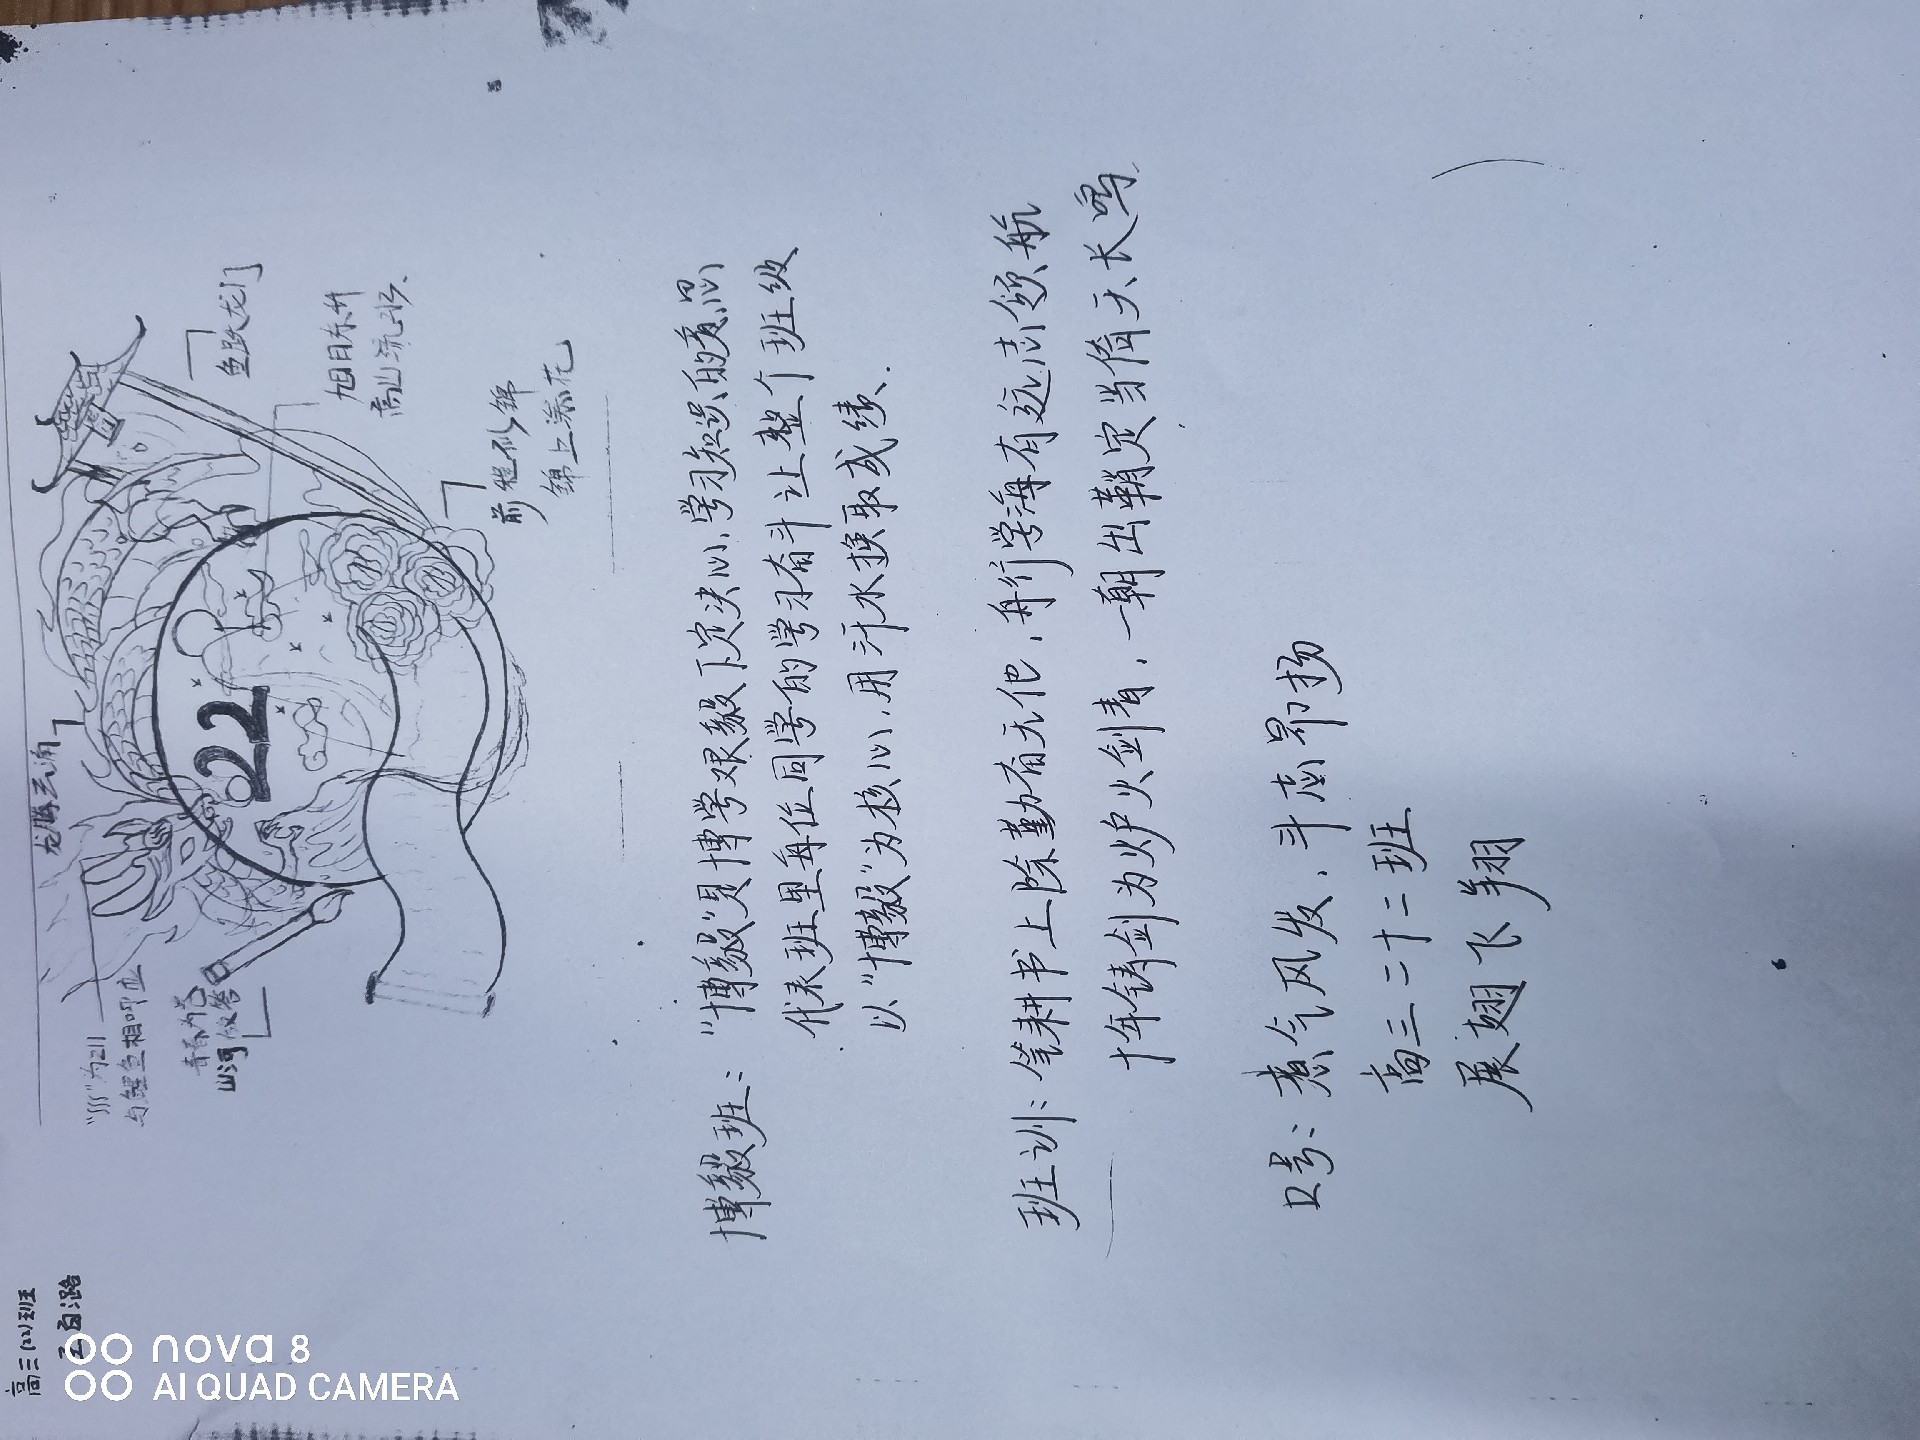 高三(22)班
龙腾云涌
与鲤鱼相呼应
山河做卷
22
鱼跃龙门
旭日东升
高山流水.
前程似锦
锦上添花
博毅班:"博毅"是博学艰毅下定决心,学习知识的意思
代表班里每位同学的学习奋斗让整个班级
以"博毅"为核心,用汗水换取成绩.
班训:笔耕书上除勤奋无他,舟行学海有远志领航
十年铸剑为炉火剑青,一朝出鞘定当倚天长鸣
口号:意气风发,斗志昂扬
高三二十二班
展翅飞翔
nova 8
AI QUAD CAMERA